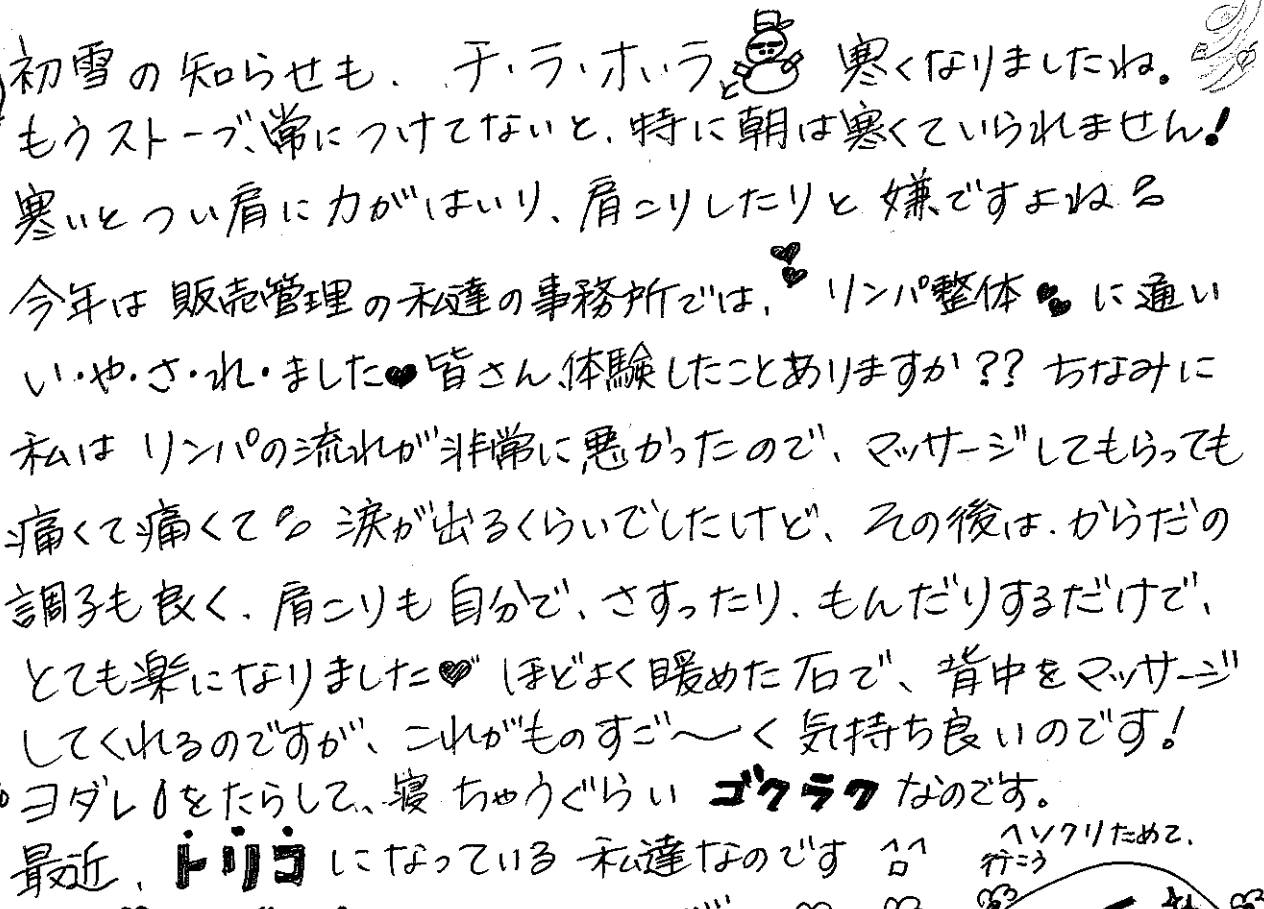 初雪の知らせも、チ・ラ・ホ・ラと 寒くなりましたね。
もうストーブ、常につけてないと、特に朝は寒くていられません!
寒いとつい肩に力がはいり、肩こりしたりと嫌ですよね
今年は販売管理の私達の事務所では、リンパ整体に通い
い・や・さ・れ・ました♥皆さん、体験したことありますか??ちなみに
私はリンパの流れが非常に悪かったので、マッサージしてもらっても
痛くて痛くて 涙が出るくらいでしたけど、その後は、からだの
調子も良く、肩こりも自分で、さすったり、もんだりするだけで、
とても楽になりました♥ ほどよく暖めた石で、背中をマッサージ
してくれるのですが、これがものすご〜く気持ち良いのです!
ヨダレをたらして、寝ちゃうぐらいゴクラクなのです。
最近、トリコになっている私達なのです ^ロ^
ヘソクリためて、
行こう